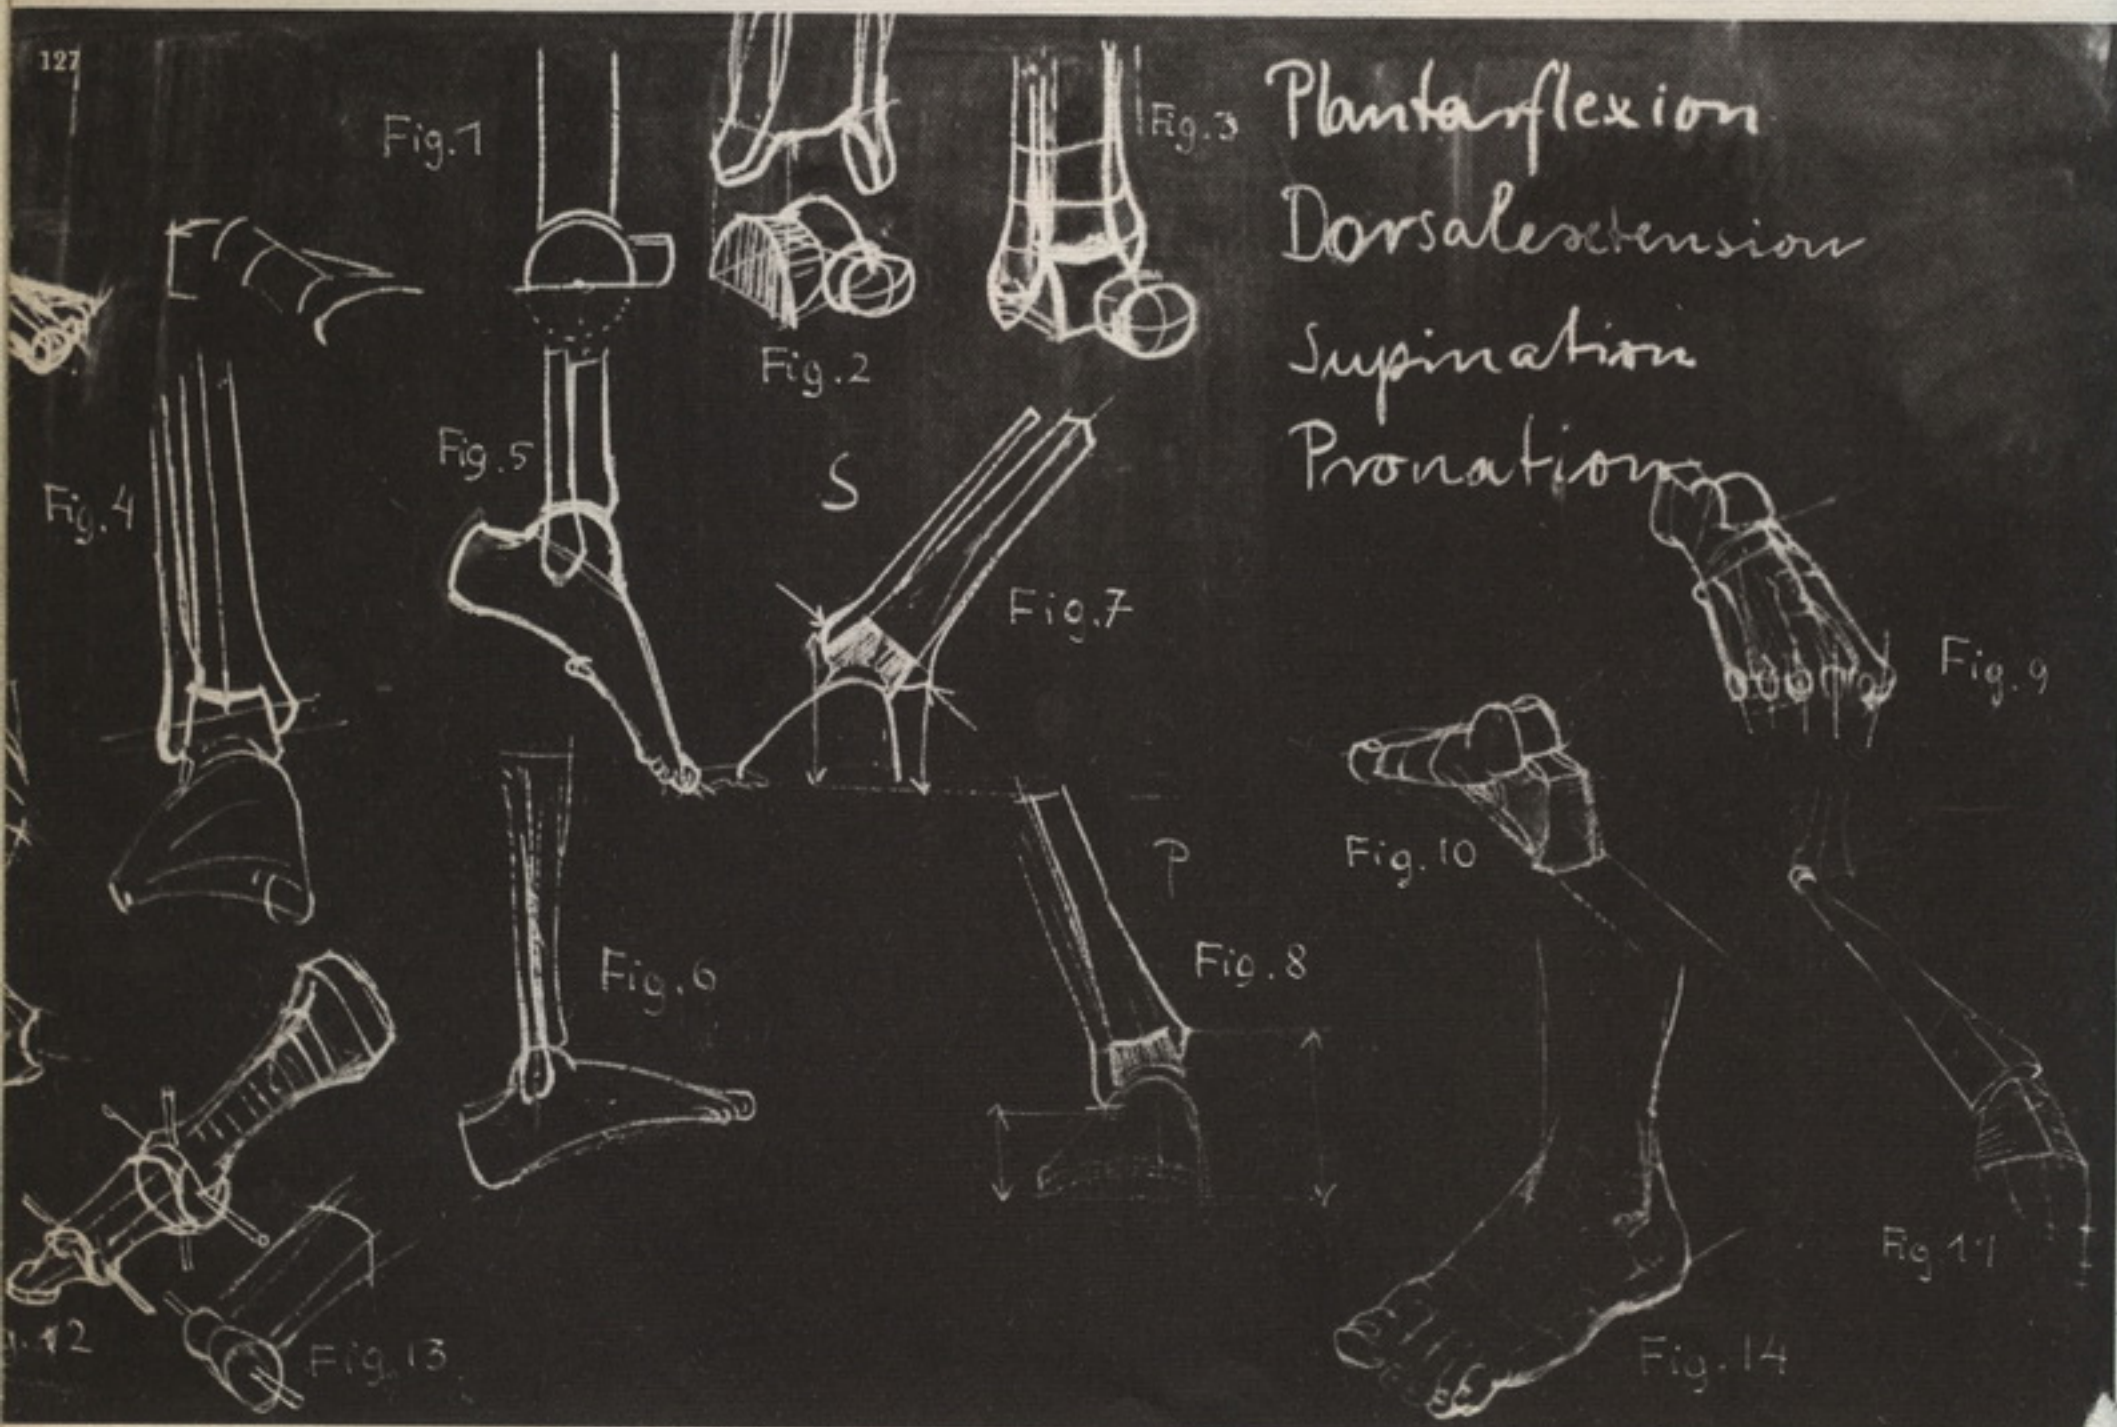 127
Fig.1
Fig.2
Fig.3
Plantarflexion
Dorsalextension
Supination
Pronation
Fig.4
Fig.5
S
Fig.7
Fig.9
Fig.10
P
Fig.6
Fig.8
Fig.11
12
Fig.13
Fig.14